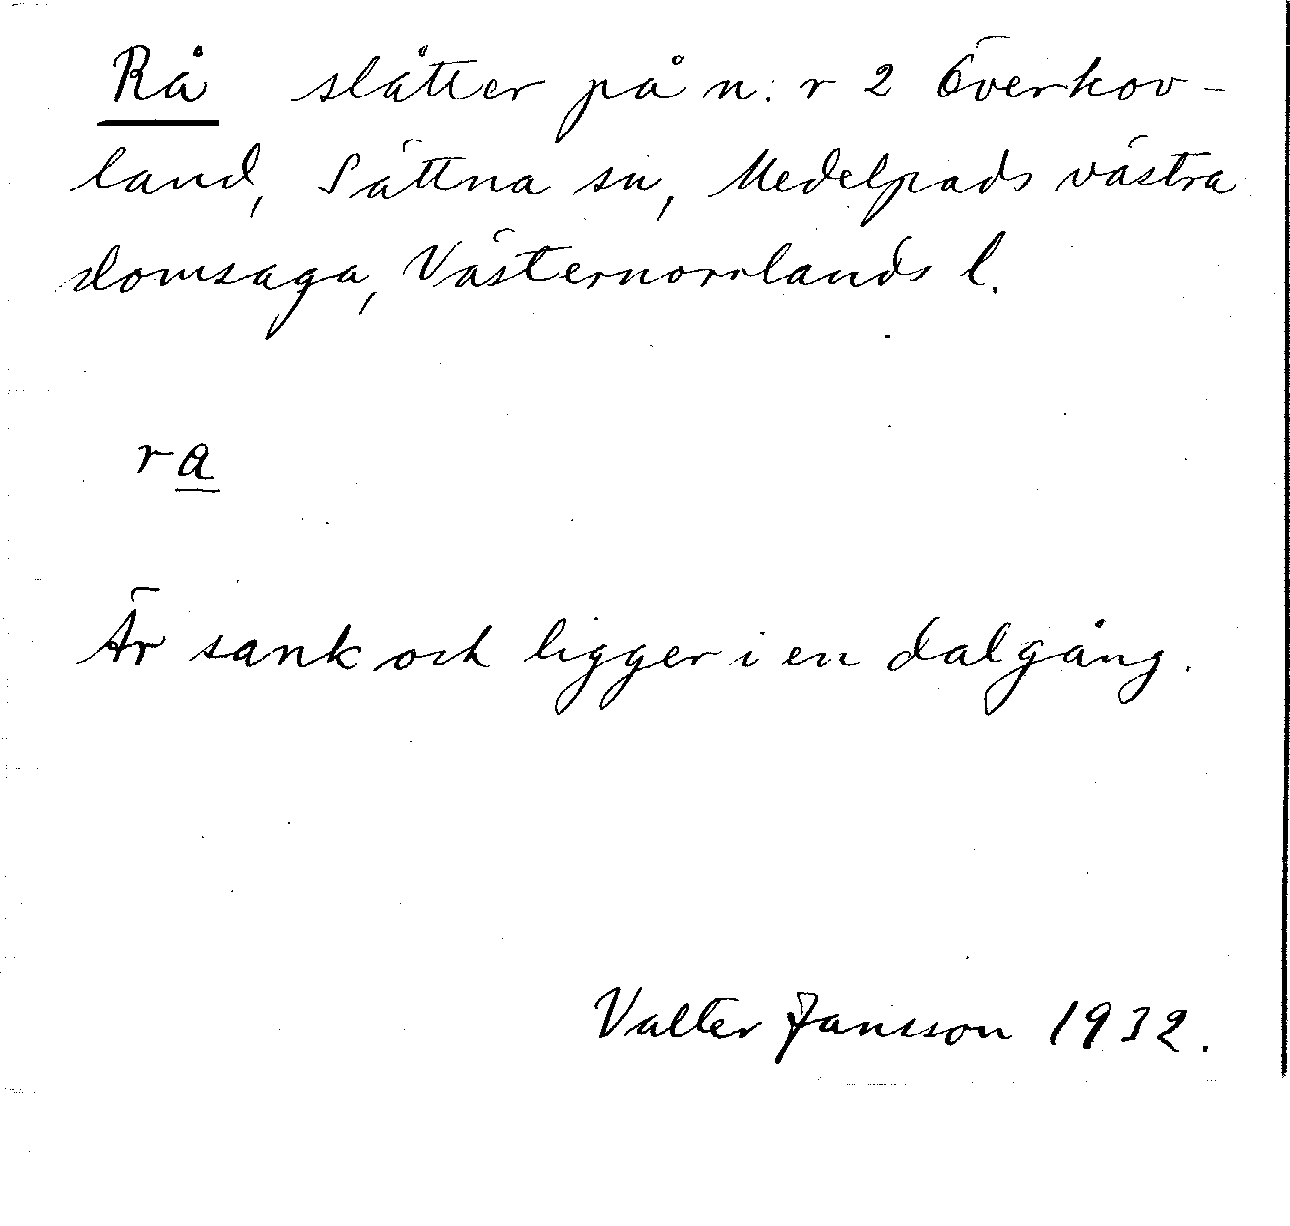 Rå slåtter på n:r 2 Överkov-
land, Sättna sn, Medelpads västra
domsaga, Västernorrlands l.
ra
Är sank och ligger i en dalgång.
Valter Jansson 1932.